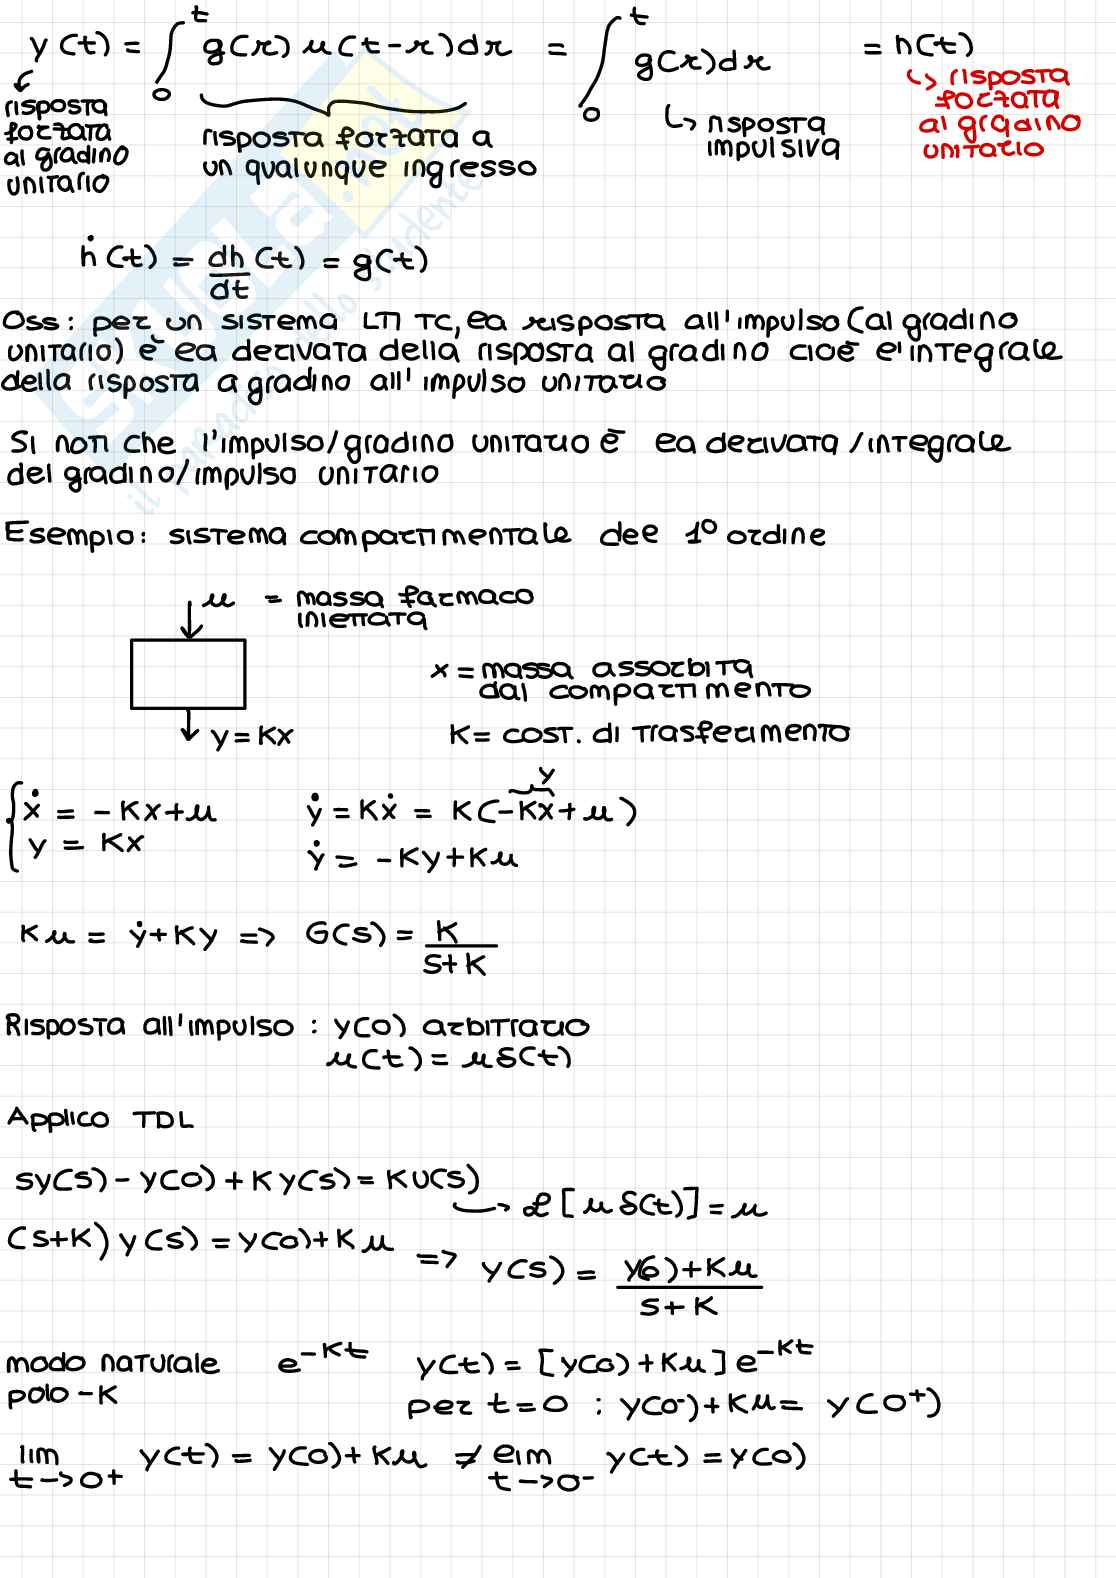 y(t) = ∫₀ᵗ g(τ) u(t-τ)dτ = ∫₀ᵗ g(τ)dτ = h(t)
risposta forzata al gradino unitario
risposta forzata a un qualunque ingresso
risposta impulsiva
risposta forzata al gradino unitario
ḣ(t) = dh/dt (t) = g(t)
Oss: per un sistema LTI TC, la risposta all'impulso (al gradino
unitario) è la derivata della risposta al gradino cioè l'integrale
della risposta a gradino all'impulso unitario
Si noti che l'impulso/gradino unitario è la derivata/integrale
del gradino/impulso unitario
Esempio: sistema compartimentale del 1° ordine
u = massa farmaco
iniettata
x = massa assorbita
dal compartimento
y = Kx
K = cost. di trasferimento
ẋ = -Kx+u
y = Kx
y
ẏ = Kẋ = K(-Kx+u)
ẏ = -Ky+Ku
Ku = ẏ+Ky => G(s) = K/(s+K)
Risposta all'impulso : y(0) arbitrario
u(t) = uδ(t)
Applico TDL
sy(s) - y(0) + Ky(s) = KU(s)
→ ℒ[uδ(t)] = u
(s+K) y(s) = y(0)+Ku => y(s) = (y(0)+Ku)/(s+K)
modo naturale e^-Kt y(t) = [y(0)+Ku]e^-Kt
polo -K
per t=0 : y(0⁻)+Ku = y(0⁺)
lim t->0+ y(t) = y(0)+Ku ≠ lim t->0- y(t) = y(0)
SKUOLA.net
il paradiso dello studente